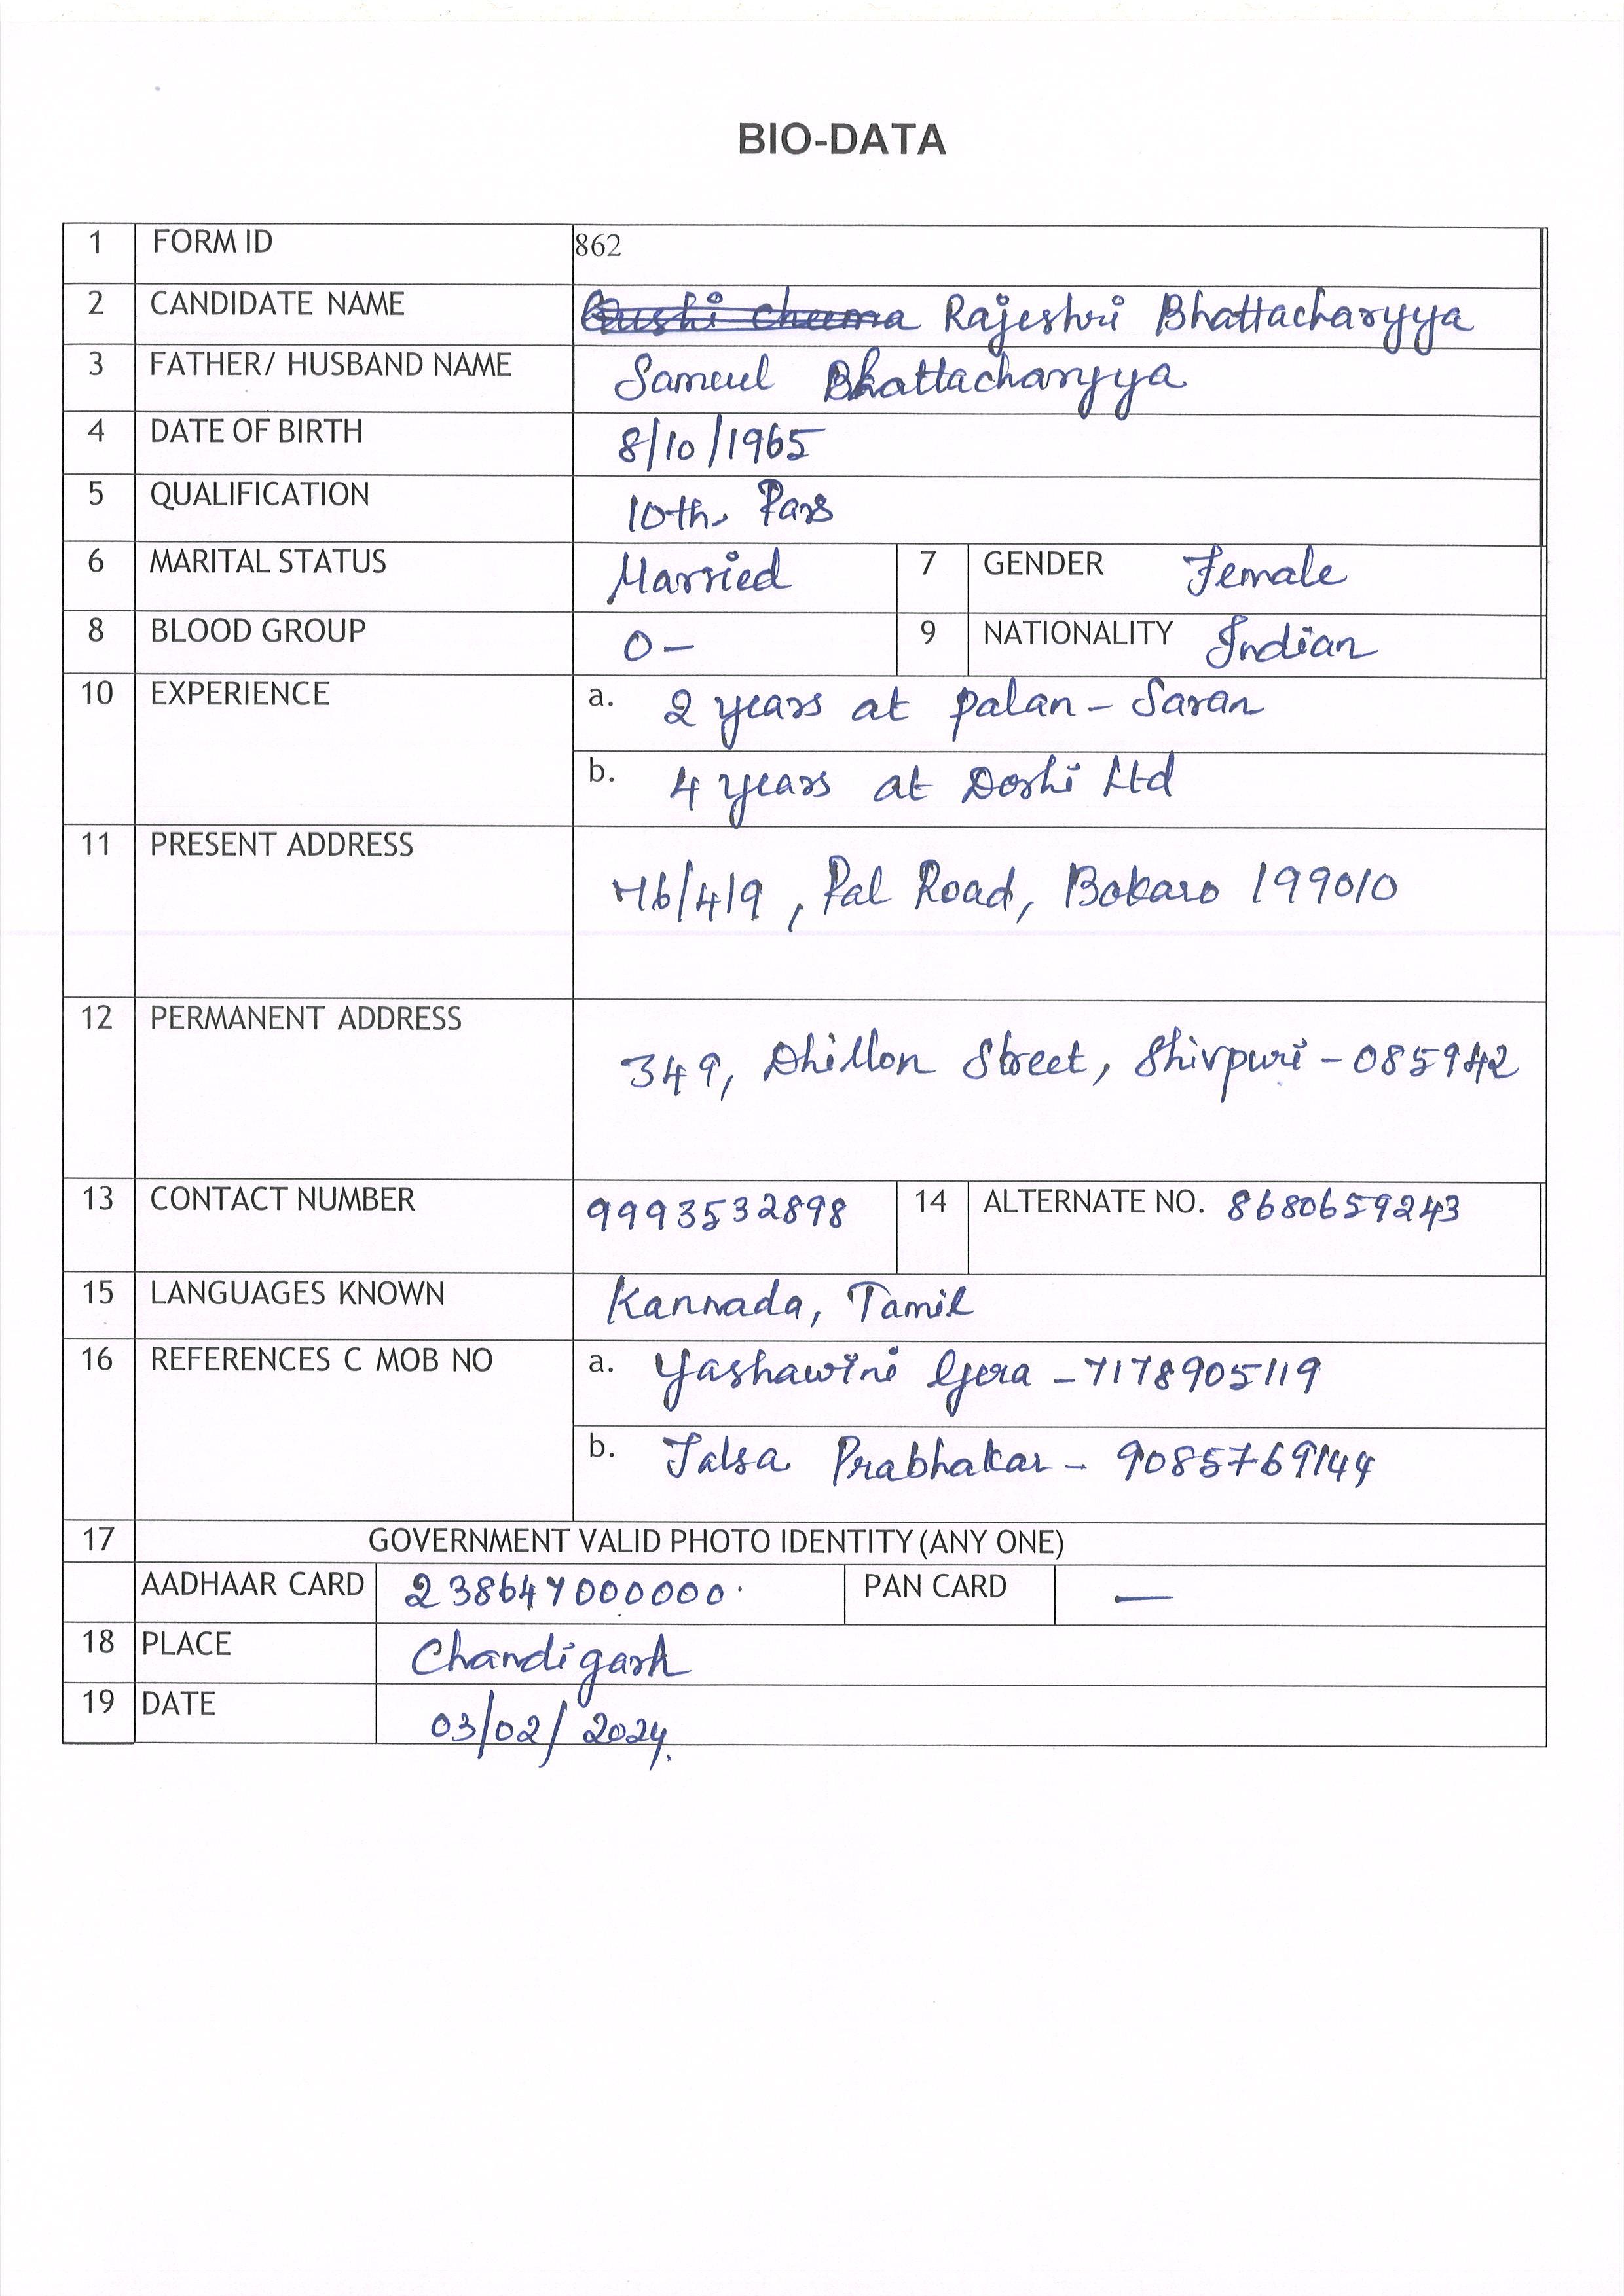 BIO-DATA
1 FORM ID 862
2 CANDIDATE NAME Rajeshri Bhattacharyya
3 FATHER/ HUSBAND NAME Samuel Bhattacharyya
4 DATE OF BIRTH 8/10/1965
5 QUALIFICATION 10th Pass
6 MARITAL STATUS Married 7 GENDER Female
8 BLOOD GROUP O- 9 NATIONALITY Indian
10 EXPERIENCE a. 2 years at palan - Saran
b. 4 years at Doshi Ltd
11 PRESENT ADDRESS H6/419, Pal Road, Bokaro 199010
12 PERMANENT ADDRESS 349, Dhillon Street, Shivpuri - 085942
13 CONTACT NUMBER 9993532898 14 ALTERNATE NO. 8680659243
15 LANGUAGES KNOWN Kannada, Tamil
16 REFERENCES C MOB NO a. Yashawini Gera - 7178905119
b. Jalsa Prabhakar - 9085769144
17 GOVERNMENT VALID PHOTO IDENTITY (ANY ONE)
AADHAAR CARD 238647000000 PAN CARD —
18 PLACE Chandigarh
19 DATE 03/02/2024